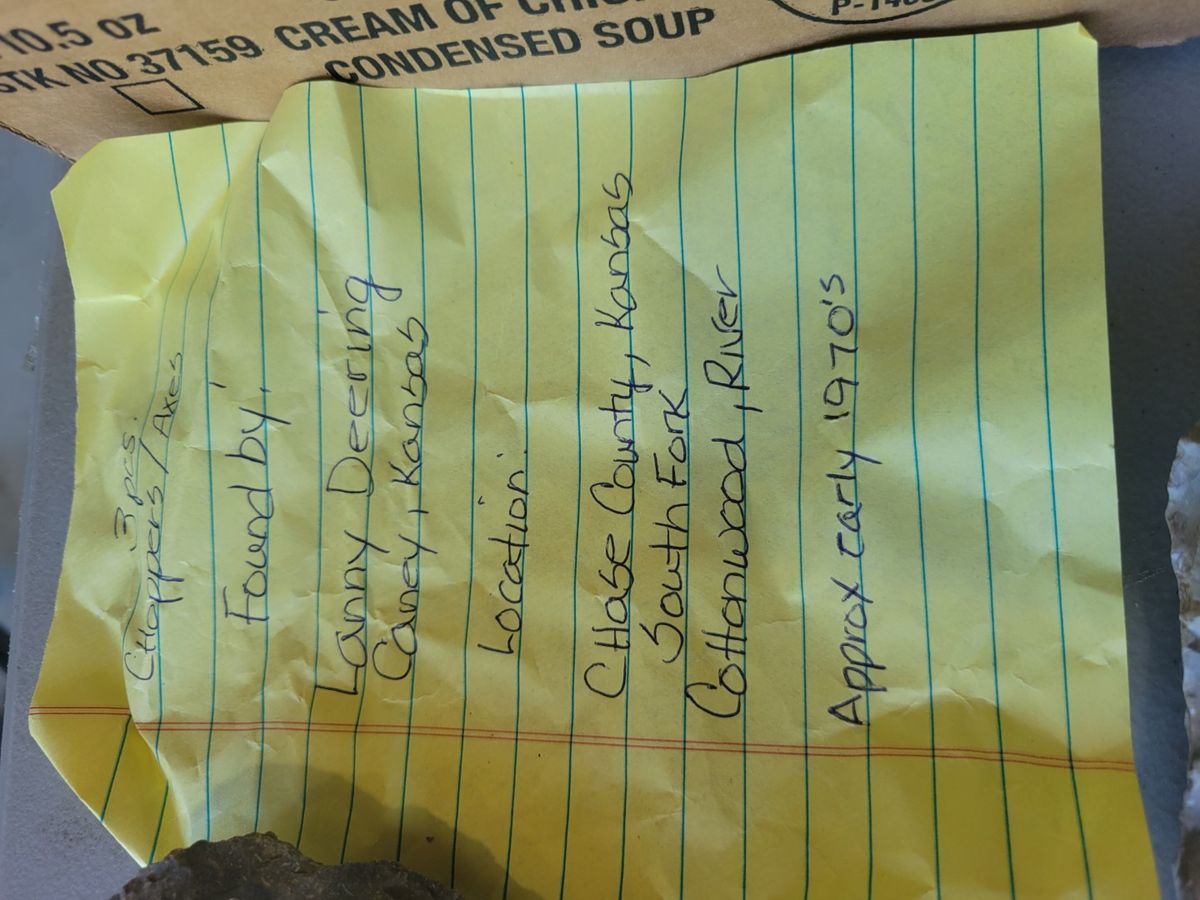 10.5 oz
STK NO 37159
CREAM OF
CONDENSED SOUP
3 pcs.
CHoppers / Axes
Found by:
Lanny Deering
Caney, Kansas
Location:
CHase County, Kansas
South Fork
Cottonwood, River
Approx early 1970's